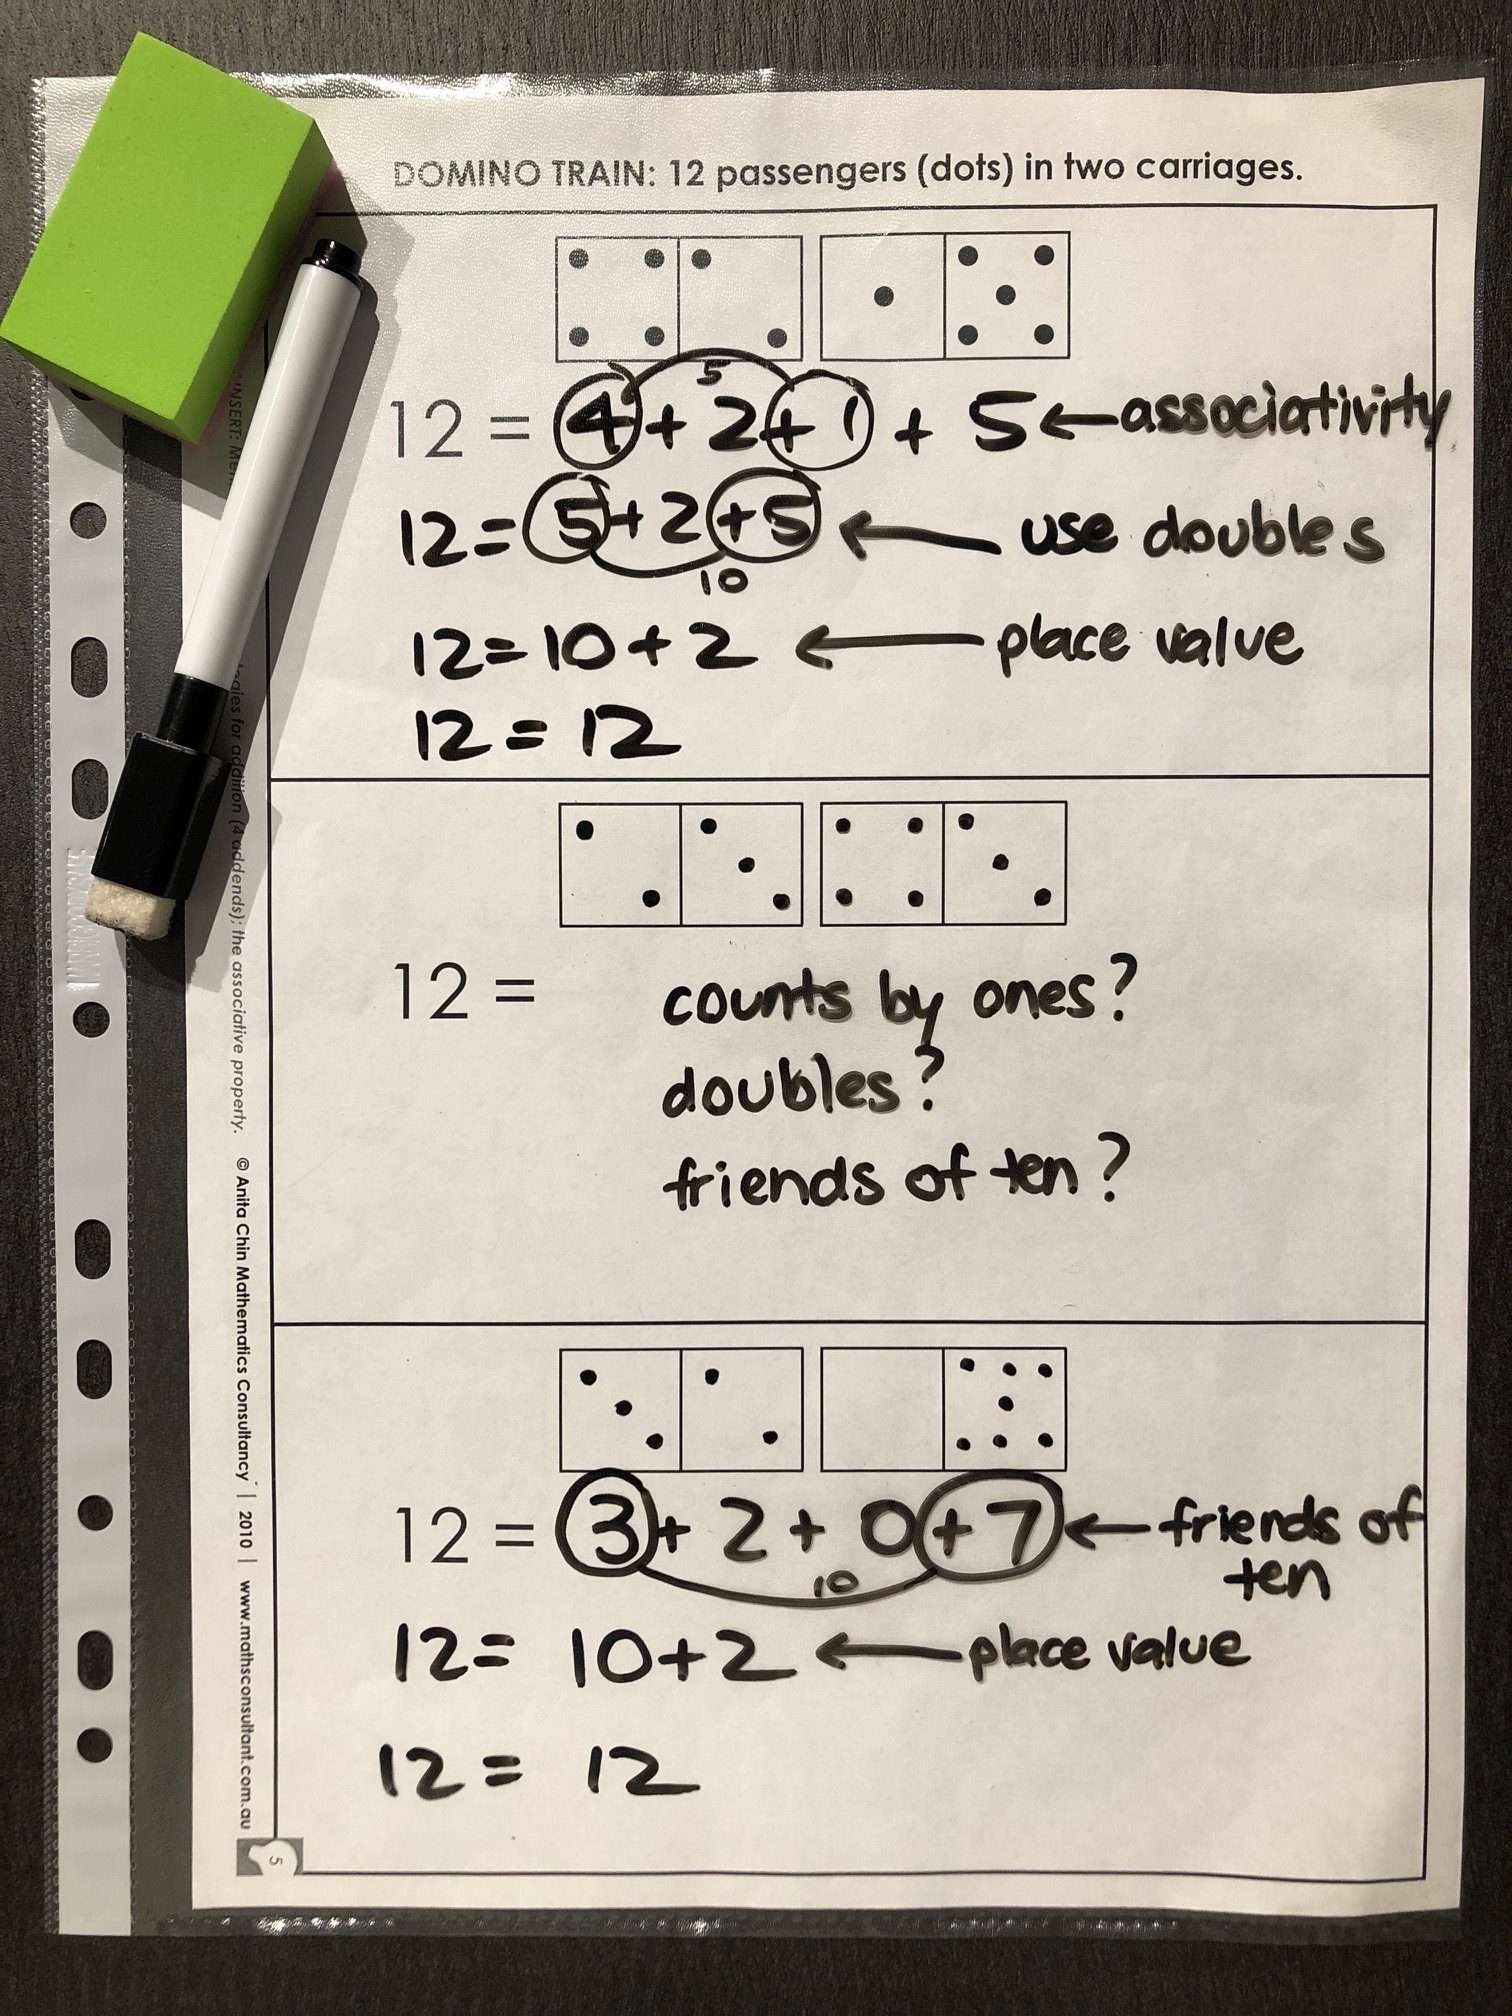 DOMINO TRAIN: 12 passengers (dots) in two carriages.
5
12 = 4 + 2 + 1 + 5 ← associativity
12 = 5 + 2 + 5 ← use doubles
10
12 = 10 + 2 ← place value
12 = 12
12 = counts by ones?
doubles?
friends of ten?
12 = 3 + 2 + 0 + 7 ← friends of
ten
10
12 = 10 + 2 ← place value
12 = 12
INSERT:
for addition (4 addends); the associative property. © Anita Chin Mathematics Consultancy | 2010 | www.mathsconsultant.com.au
5